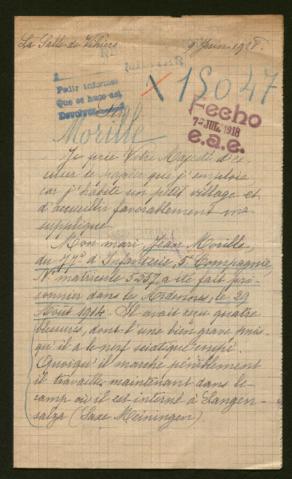 La Salle de Vihiers 9 Juin 1918.
Pedir informes
Que se haga est
Devolver
X 15047
Fecha
7- JUL. 1918
e.a.e.
Morille
Je prie Votre Majesté d'ex-
cuser le papier que j'emploie
car j'habite un petit village et
d'accueillir favorablement ma
supplique.
Mon mari Jean Morille,
du 77e d'Infanterie, 5e Compagnie,
No matricule 5257 a été fait pri-
sonnier dans les Ardennes, le 29
Août 1914. Il avait reçu quatre
blessures, dont l'une bien grave puis-
qu'il a le nerf sciatique
Quoiqu'il marche péniblement
il travaille maintenant dans le
camp où il est interné à Langen-
salza (Saxe Meiningen)